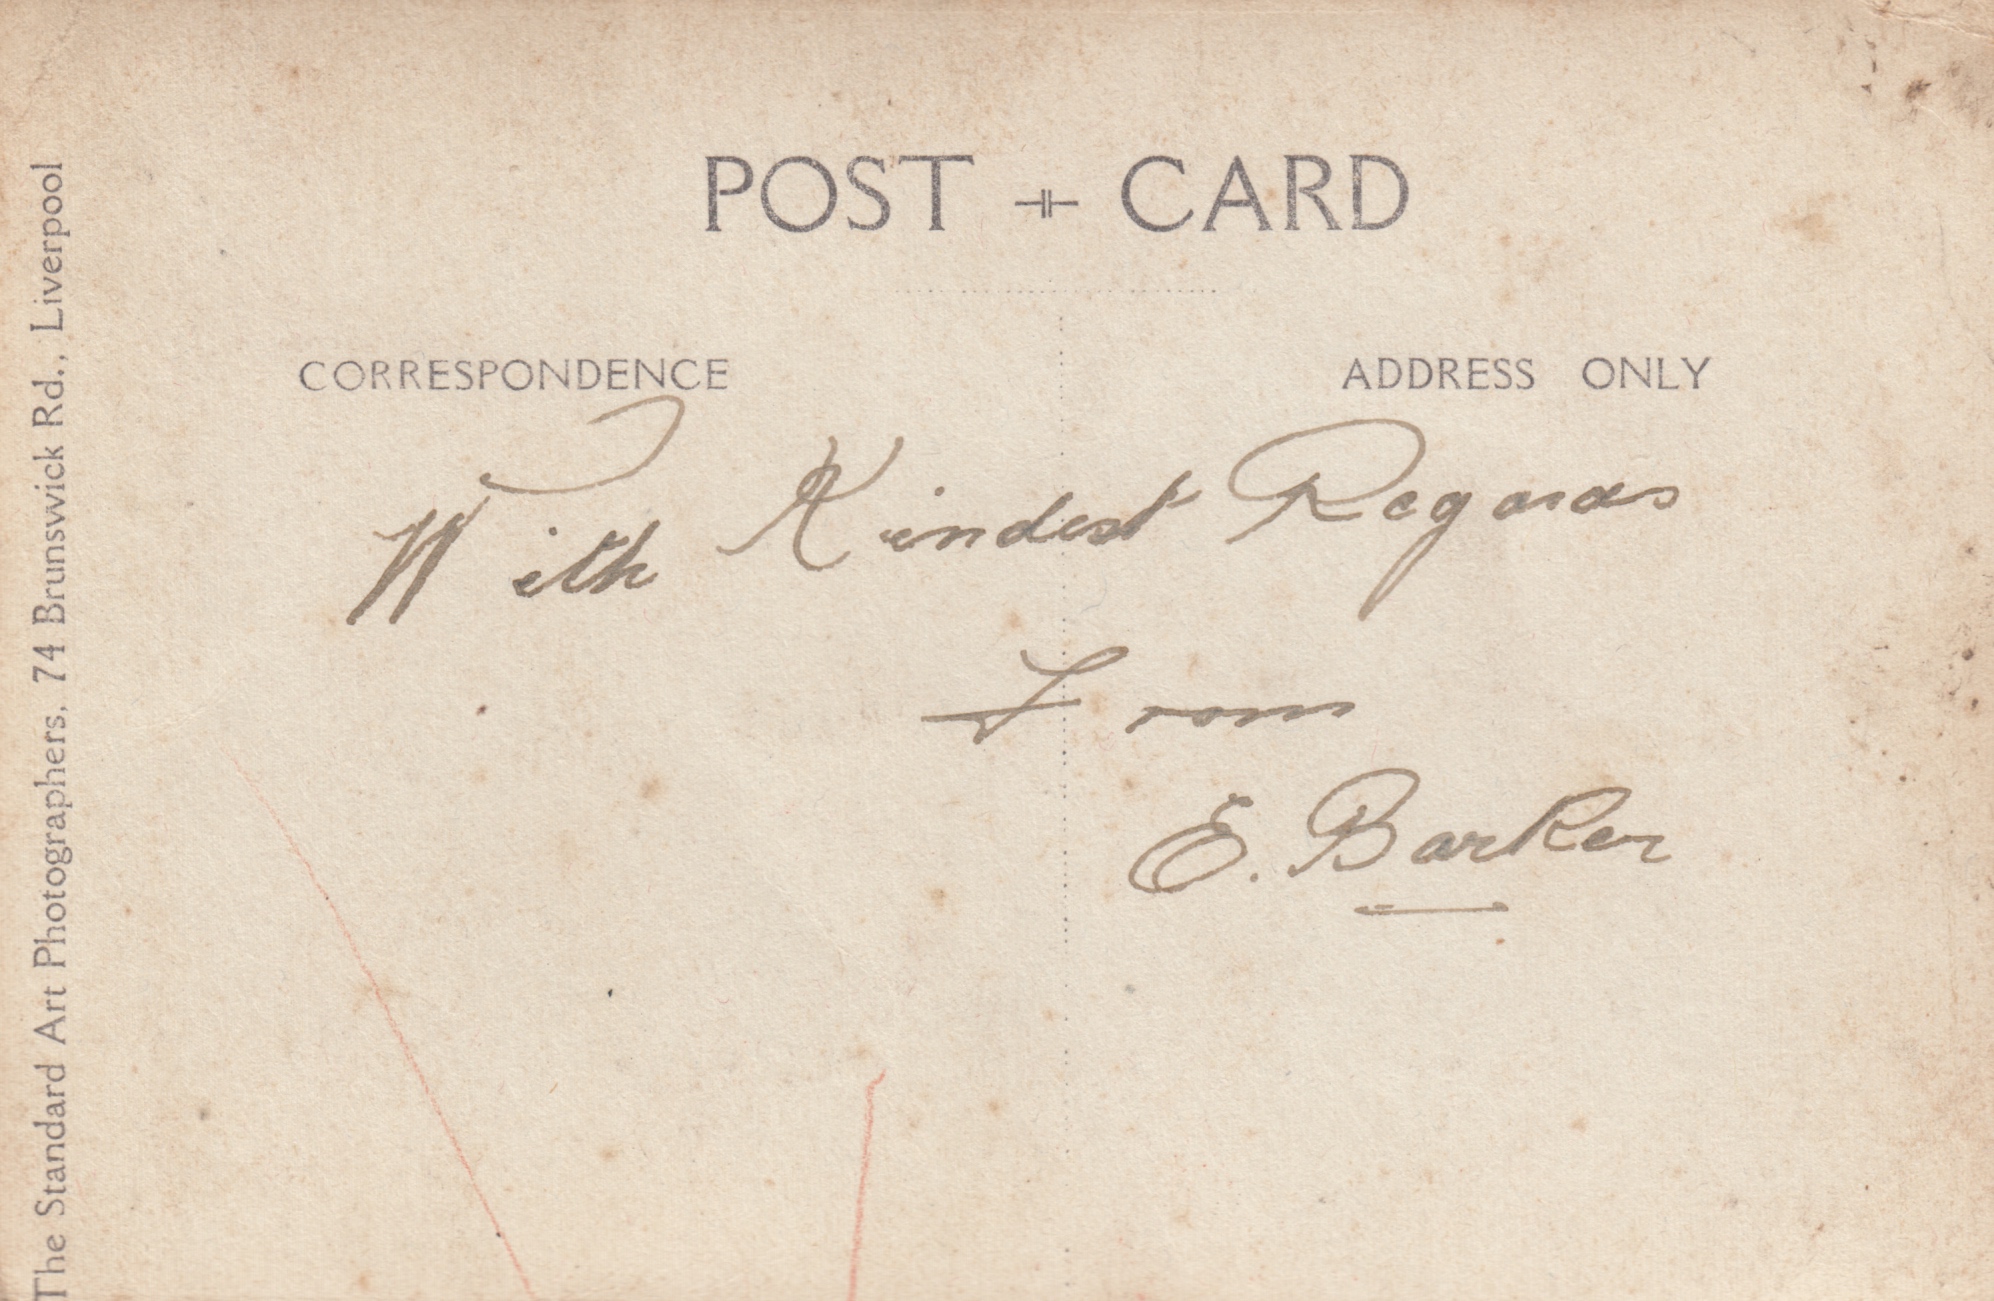 POST CARD
CORRESPONDENCE
ADDRESS ONLY
With Kindest Regards
From
E. Barker
The Standard Art Photographers, 74 Brunswick Rd., Liverpool